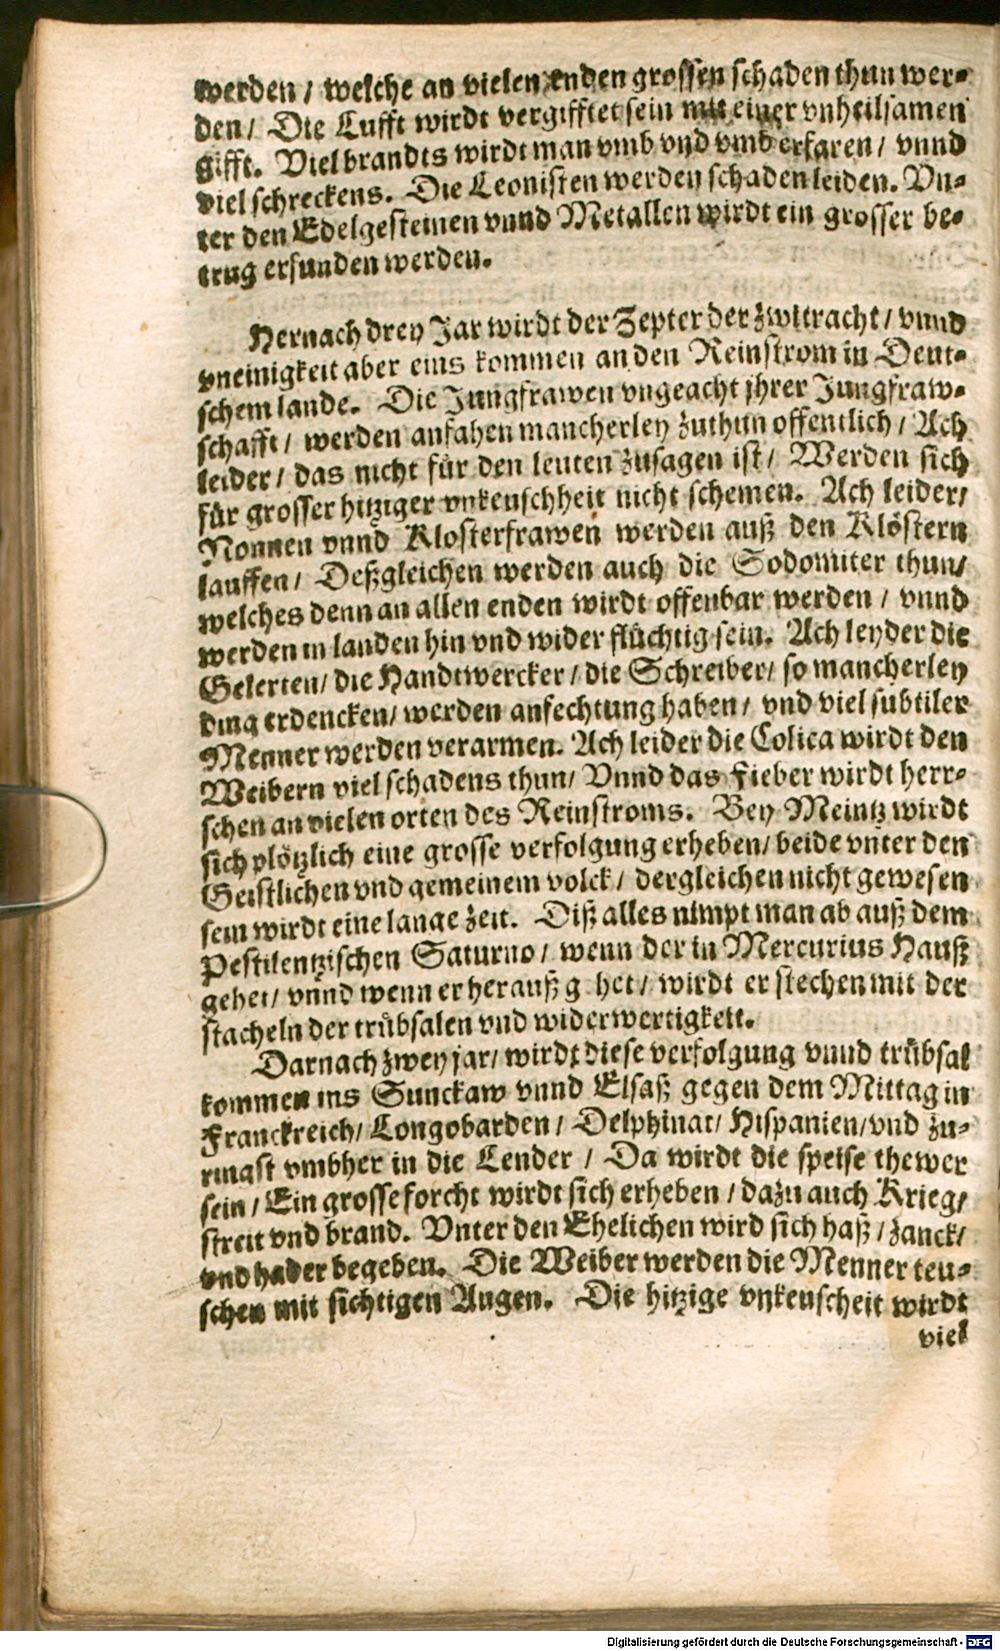 werden / welche an vielen enden grossen schaden thun wer-
den / Die Lufft wirdt vergifftet sein mit einer vnheilsamen
gifft. Viel brandts wirdt man vmb vnd vmb erfaren / vnnd
viel schreckens. Die Leonisten werden schaden leiden. Vn-
ter den Edelgesteinen vnnd Metallen wirdt ein grosser be-
trug erfunden werden.
Hernach drey Jar wirdt der Zepter der zwitracht / vnnd
vneinigkeit aber eins kommen an den Reinstrom in Deut-
schem lande. Die Jungfrawen vngeacht jhrer Jungfraw-
schafft / werden anfahen mancherley zuthun offentlich / Ach
leider / das nicht für den leuten zusagen ist / Werden sich
für grosser hitziger vnkeuschheit nicht schemen. Ach leider /
Nonnen vnnd Klosterfrawen werden auß den Klöstern
lauffen / Deßgleichen werden auch die Sodomiter thun /
welches denn an allen enden wirdt offenbar werden / vnnd
werden in landen hin vnd wider flüchtig sein. Ach leyder die
Gelerten / die Handtwercker / die Schreiber / so mancherley
ding erdencken / werden anfechtung haben / vnd viel subtiler
Menner werden verarmen. Ach leider die Colica wirdt den
Weibern viel schadens thun / Vnnd das Fieber wirdt herr-
schen an vielen orten des Reinstroms. Bey Meintz wirdt
sich plötzlich eine grosse verfolgung erheben / beide vnter den
Geistlichen vnd gemeinem volck / dergleichen nicht gewesen
sein wirdt eine lange zeit. Diß alles nimpt man ab auß dem
Pestilentzischen Saturno / wenn der in Mercurius Hauß
gehet / vnnd wenn er herauß g het / wirdt er stechen mit der
stacheln der trübsalen vnd widerwertigkeit.
Darnach zwey jar / wirdt diese verfolgung vnnd trübsal
kommen ins Sunckaw vnnd Elsaß gegen dem Mittag in
Franckreich / Longobarden / Delphinat / Hispanien / vnd zu-
ringst vmbher in die Lender / Da wirdt die speise thewer
sein / Ein grosse forcht wirdt sich erheben / dazu auch Krieg /
streit vnd brand. Vnter den Ehelichen wird sich haß / zanck /
vnd hader begeben. Die Weiber werden die Menner teu-
schen mit sichtigen Augen. Die hitzige vnkeuscheit wirdt
viel
Digitalisierung gefördert durch die Deutsche Forschungsgemeinschaft - DFG